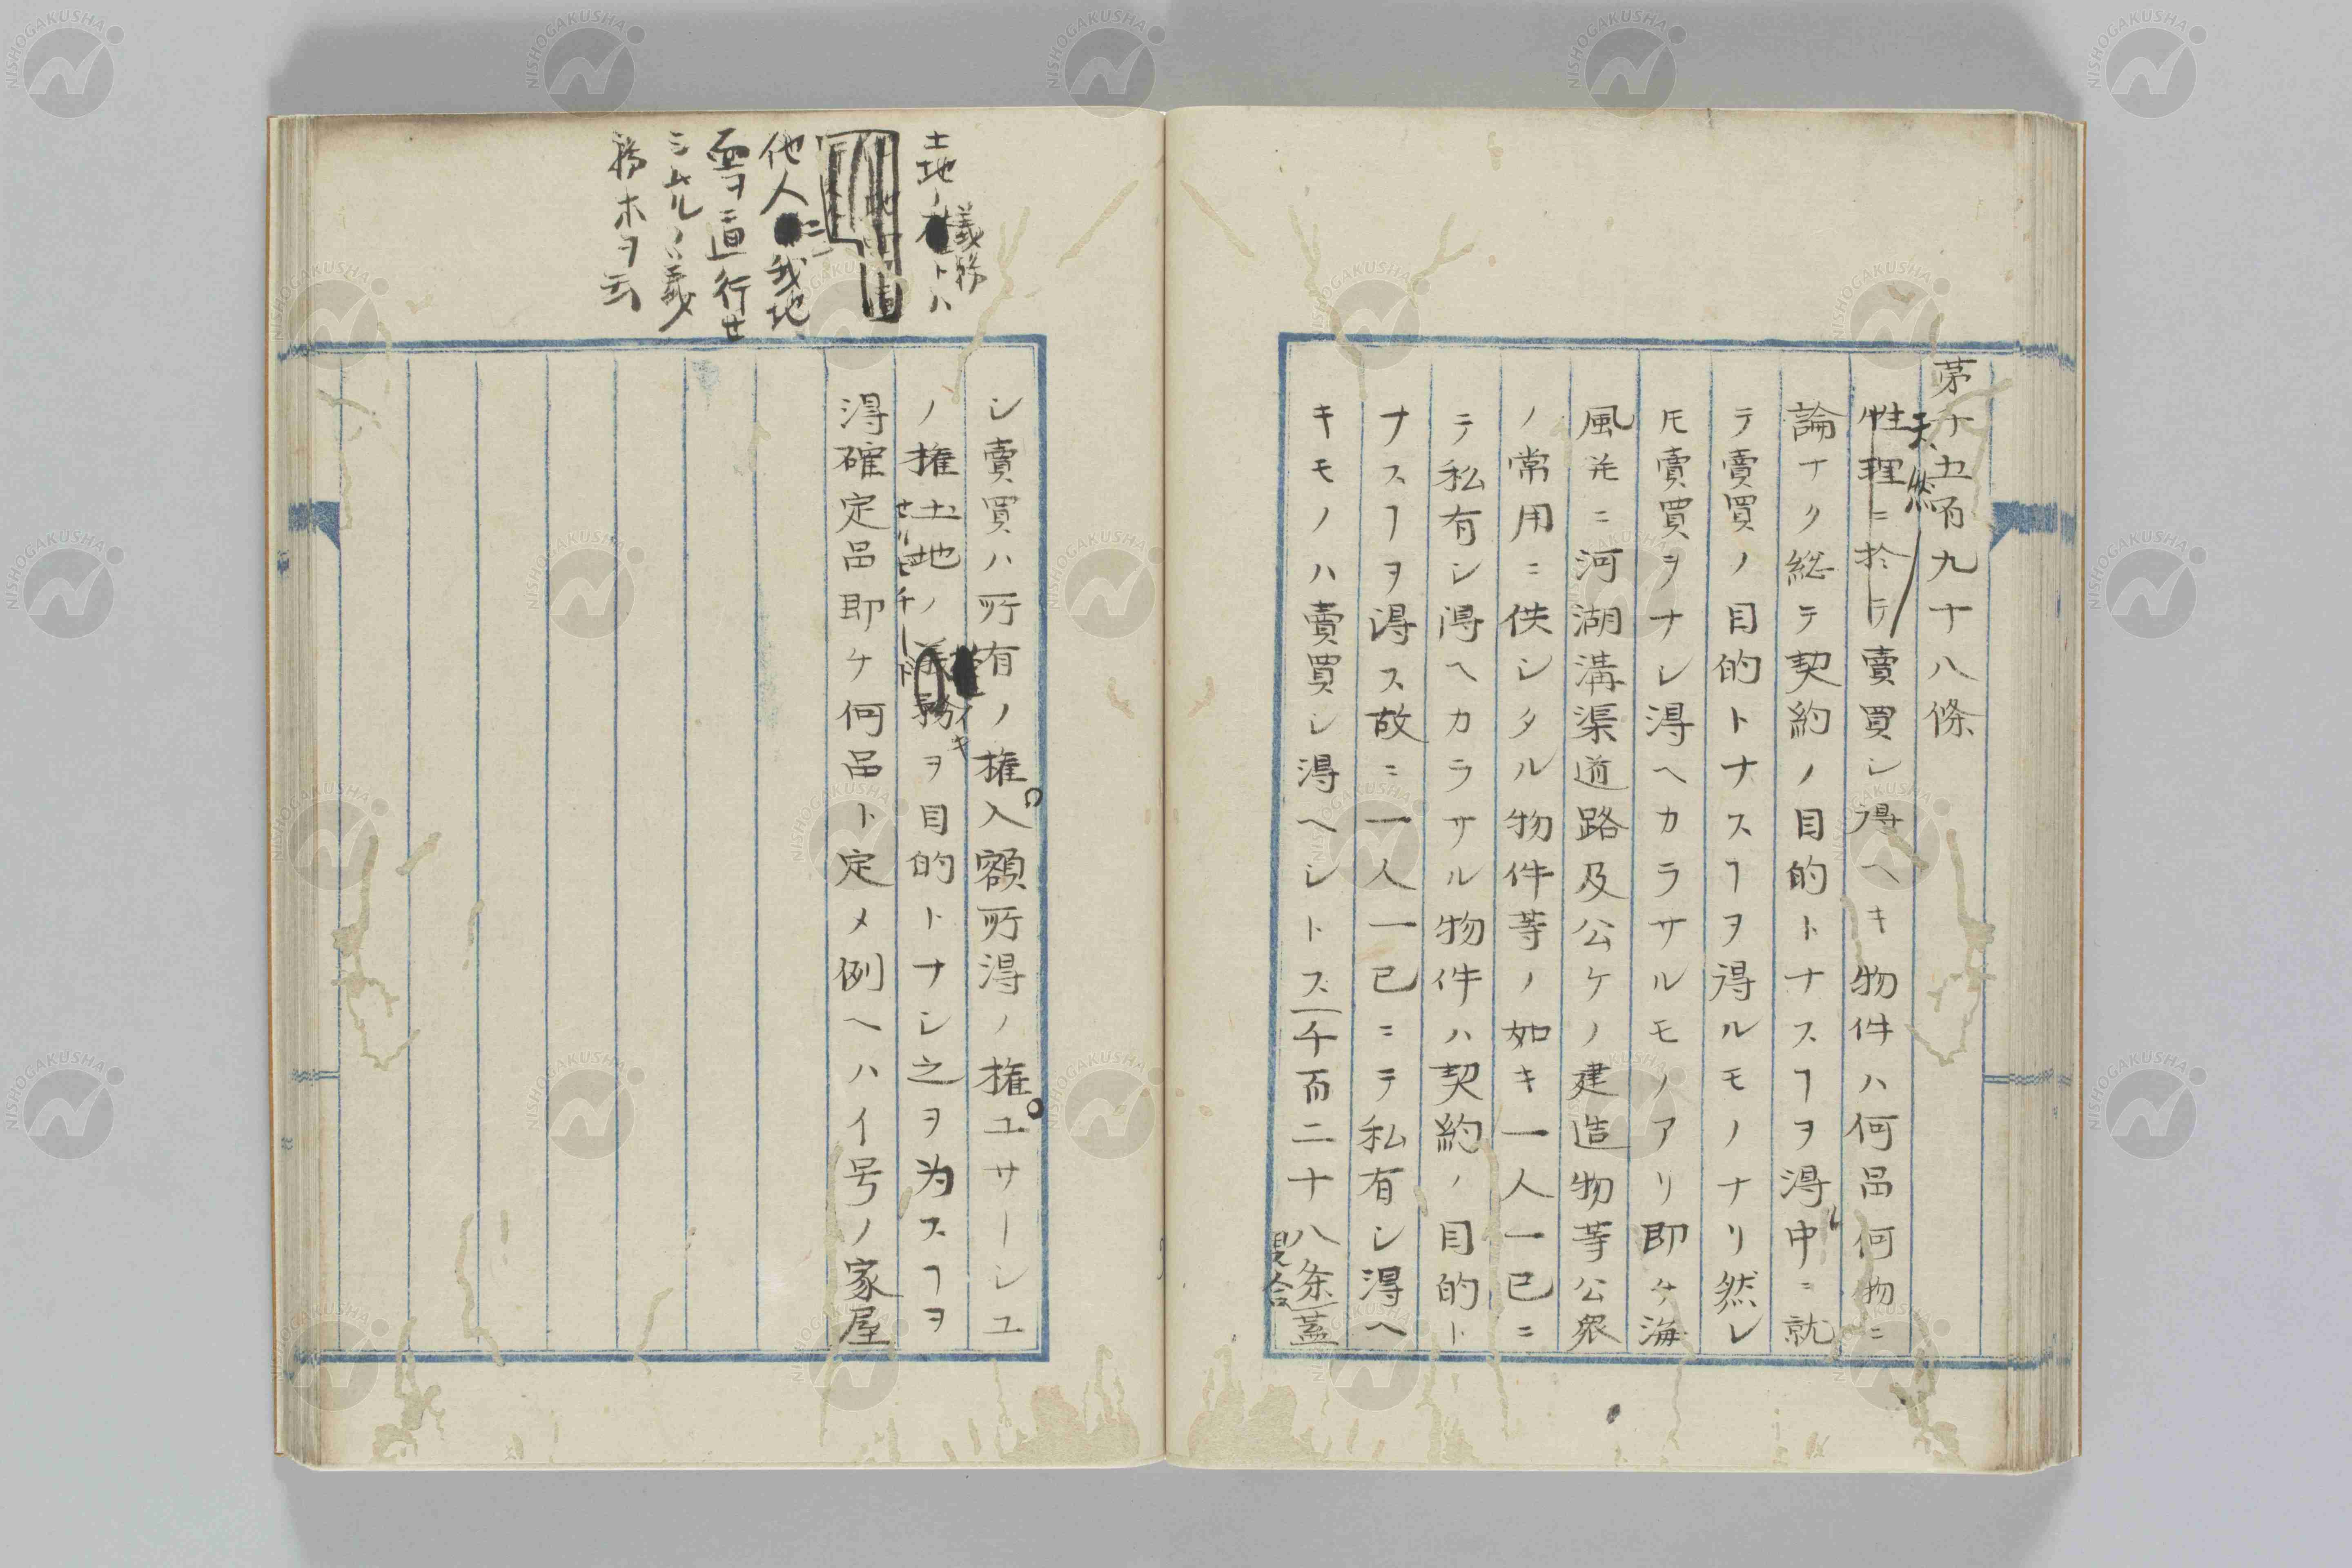 第千五百九十八條
性理ニ於テ賣買シ得ヘキ物件ハ何品何物ニ
天然
論ナク総テ契約ノ目的トナスヿヲ得中ニ就
テ賣買ノ目的トナスヿヲ得ルモノナリ然レ
𪜈賣買ヲナシ得ヘカラサルモノアリ即ケ海
風并ニ河湖溝渠道路及公ケノ建造物等公衆
ノ常用ニ供シタル物件等ノ如キ一人一已ニ
テ私有シ得ヘカラサル物件ハ契約ノ目的ト
ナスヿヲ得ス故ニ一人一已ニテ私有シ得ヘ
キモノハ賣買シ得ヘシトス千百二十八条蓋
見合
土地ノトハ
義務
他人ニ我地
面ヲ通行セ
シムルノ義
務木ヲ云
シ賣買ハ所有ノ権入額所得ノ権ユサーシユ
ノ権土地ノ務ヲ目的トナシ之ヲ为スヿヲ
得確定品即ケ何品ト定メ例ヘハイ号ノ家屋
NISHOGAKUSHA